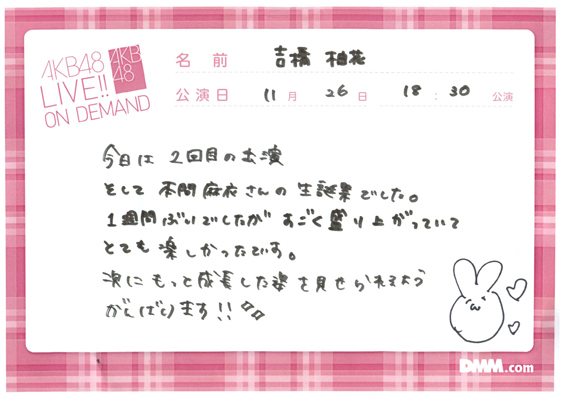 AKB48
LIVE!!
ON DEMAND
AKB
48
名前 吉橋 柚花
公演日 11月 26日 18:30 公演
今日は 2回目の出演
そして 本間麻衣さんの生誕祭でした。
1週間ぶりでしたが すごく盛り上がっていて
とても楽しかったです。
次にもっと成長した姿を見せられるよう
がんばります!!
DMM.com